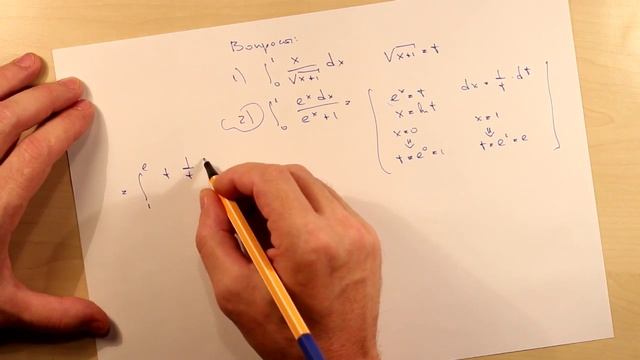 Вопросы:
1) ∫₀¹ x/√(x+1) dx √(x+1) = t
2) ∫₀¹ (eˣ dx)/(eˣ+1) = ( eˣ = t dx = 1/t · dt
x = ln t
x=0 x=1
⇓ ⇓
t = e⁰ = 1 t = e¹ = e )
= ∫₁ᵉ t 1/t